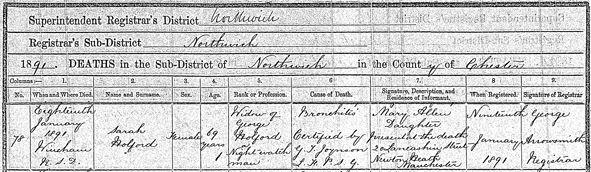 Superintendent Registrar's District Northwich
Registrar's Sub-District Northwich
1891. DEATHS in the Sub-District of Northwich in the County of Chester
Columns:— 1. 2. 3. 4. 5. 6. 7. 8. 9.
No. When and Where Died. Name and Surname. Sex. Age. Rank or Profession. Cause of Death. Signature, Description, and Residence of Informant. When Registered. Signature of Registrar
78
Eighteenth
January
1891
Wincham
U.S.D.
Sarah
Holford
Female
69
years
Widow of
George
Holford
Night watch
man
Bronchitis
Certified by
Mary Allen
Daughter
Present at the death
20 Lancashire Street
Newton Heath
Manchester
Nineteenth
January
1891
George
Arrowsmith
Registrar